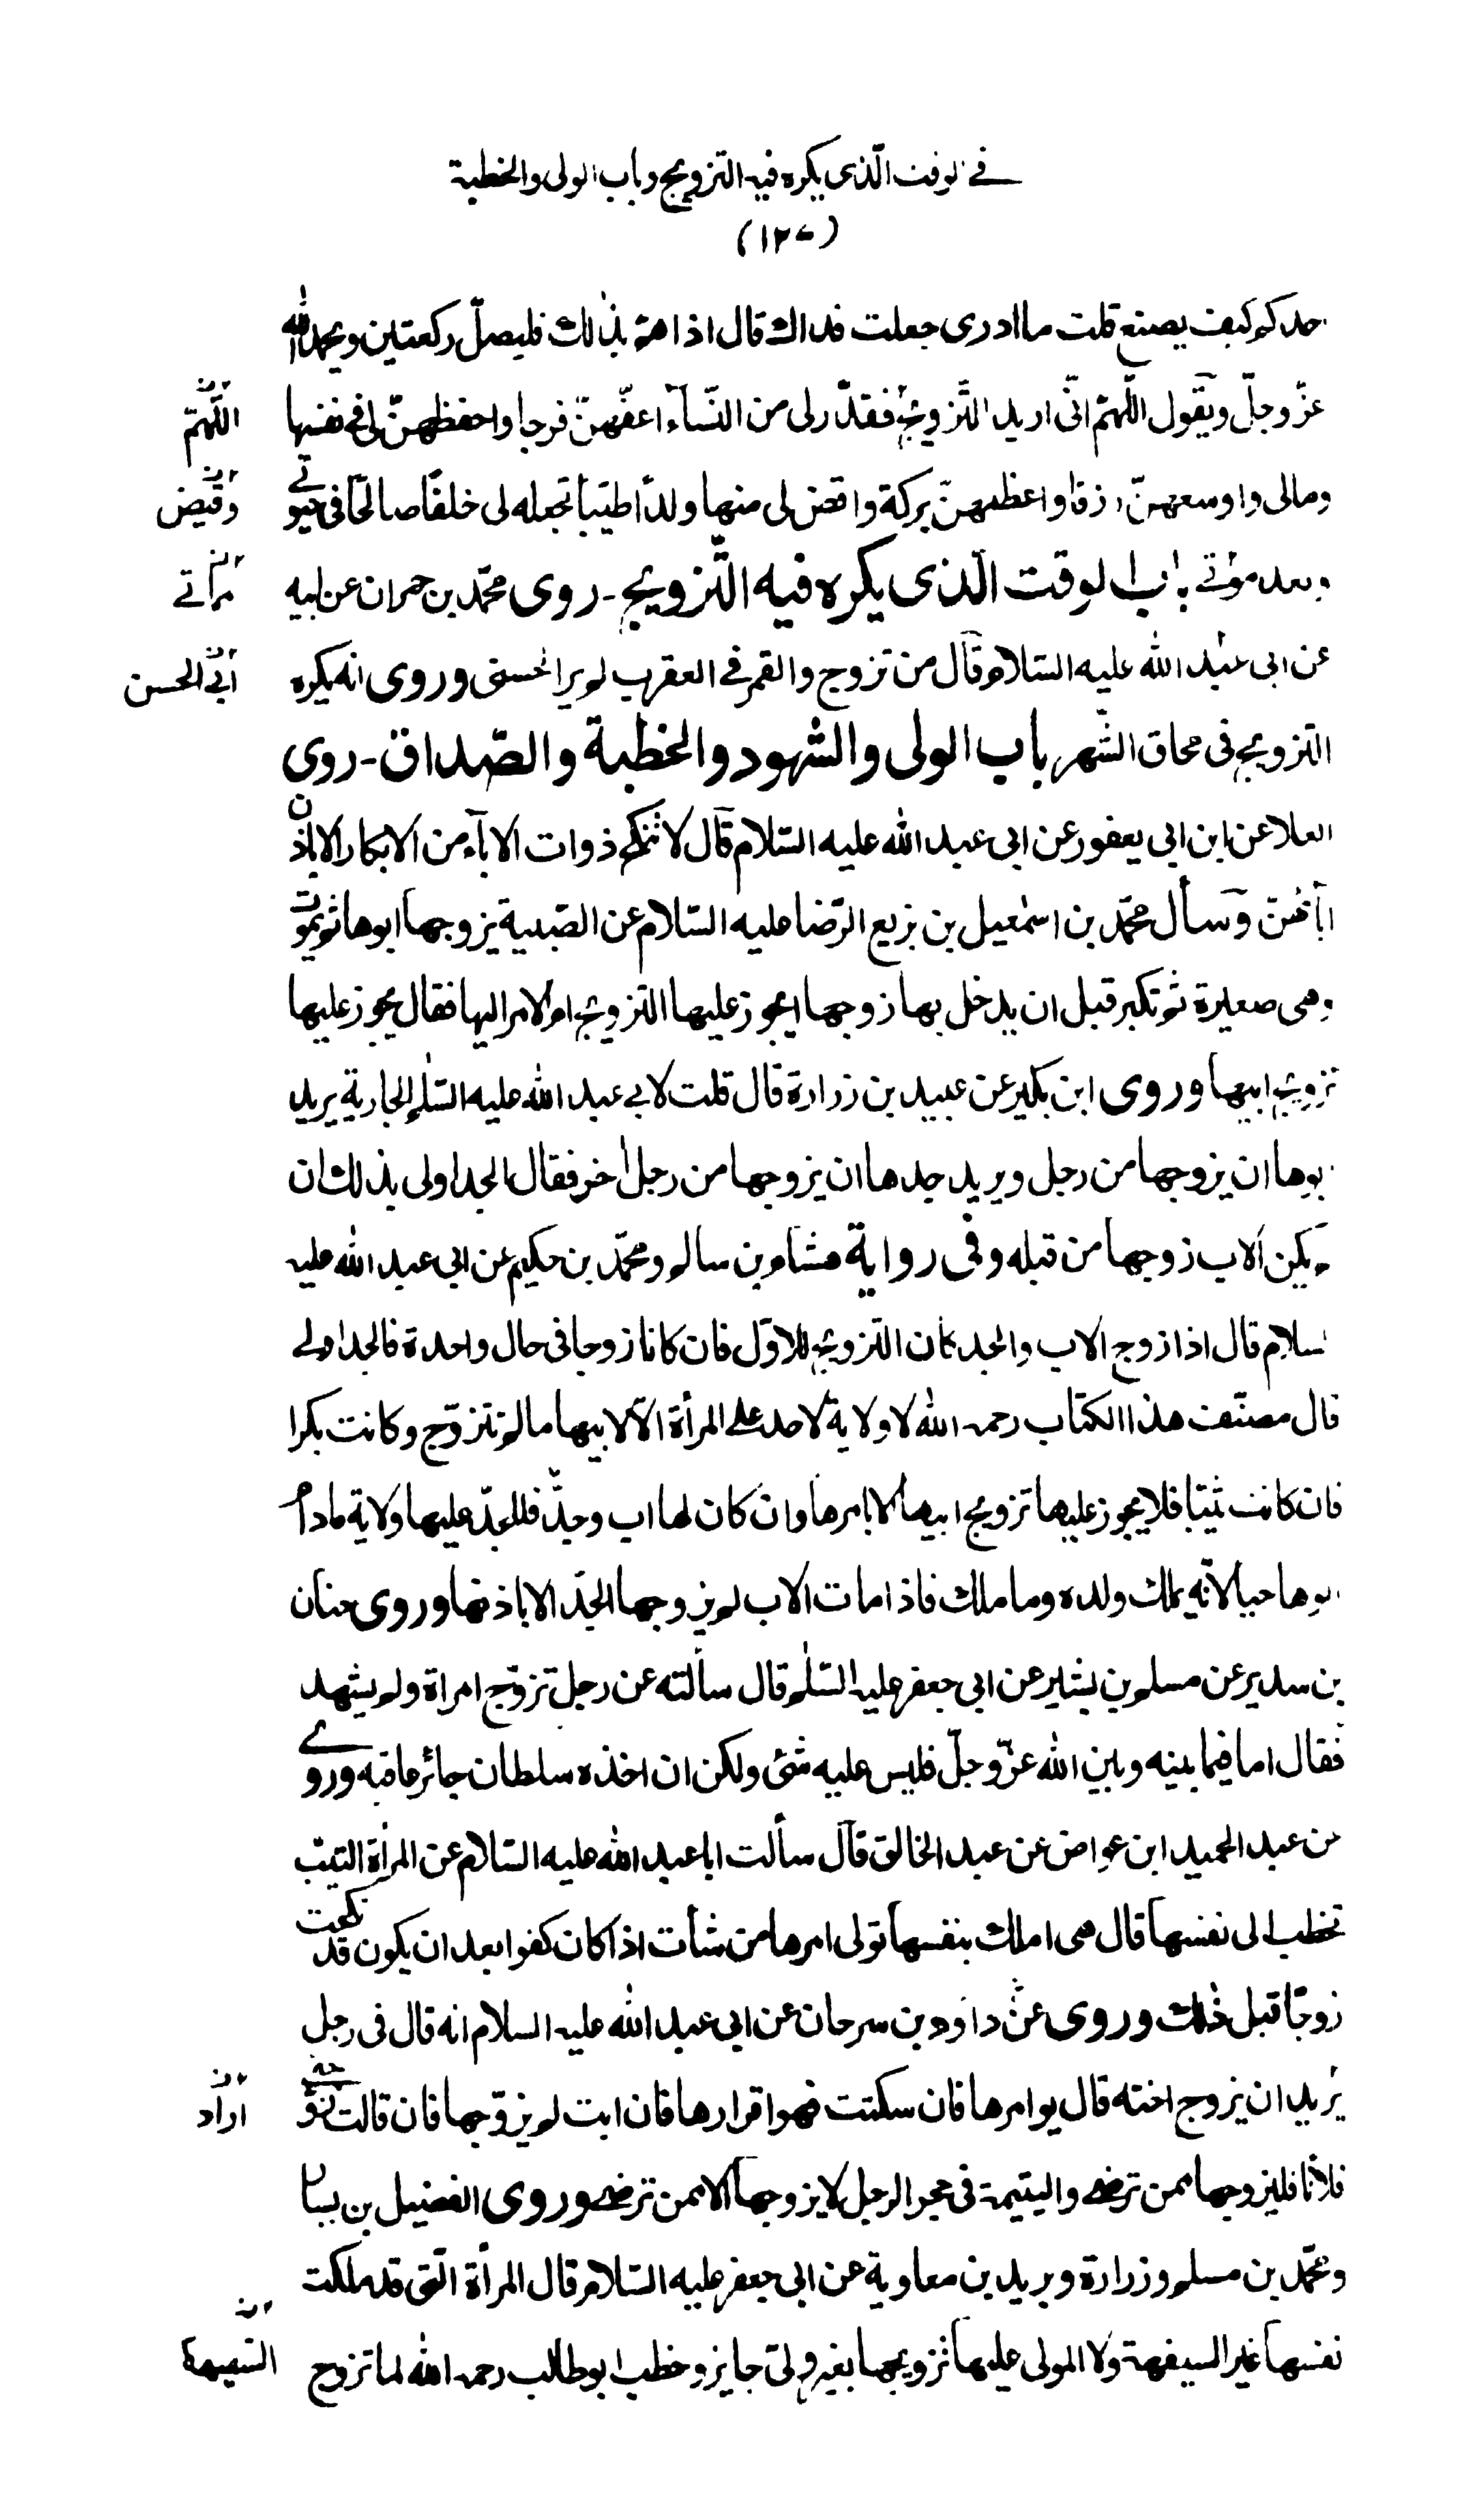 في الوقت الّذى يكره فيه التزويج وباب الولى والخطبة
(١٢٧)
احدكم كيف يصنع قلت ما ادرى جعلت فداك قال اذا هم بذلك فليصلّ ركعتين ويحمد الله
عزّ وجلّ ويقول اللّهمّ انّى اريد التّزويج فقدّر لى من النّسآء اعفّهنّ فرجا واحفظهنّ لى في نفسها
اللّهمّ
ومالى واوسعهنّ رزقا واعظمهنّ بركة واقض لى منها ولدا طيّبا تجعله لى خلفا صالحًا فى حيوتي
وقيّض
وبعد موتي باب الوقت الّذى يكره فيه التّزويج - روى محمّد بن حمران عن ابيه
عن ابى عبد الله عليه السّلام قال من تزوج والقمر في العقرب لم ير الحسنى وروى انه يكره
ابي الحسن
التزويج فى محاق الشهر باب الولى والشهود والخطبة والصّداق - روى
العلا عن ابن ابى يعفور عن ابى عبد الله عليه السّلام قال لا تنكح ذوات الابآء من الابكار الا باذن
ابآئهنّ وسأل محمّد بن اسمٰعيل بن بزيع الرّضا عليه السّلام عن الصّبية يزوجها ابوها ثم يموت
وهى صغيرة ثم تكبر قبل ان يدخل بها زوجها ايجوز عليها التزويج ام الامر اليها فقال يجوز عليها
تزويج ابيها وروى ابن بكير عن عبيد بن زرارة قال قلت لابي عبد الله عليه السّلم الجارية يريد
ابوها ان يزوجها من رجل ويريد جدها ان يزوجها من رجل اخر فقال الجد اولى بذلك ان
لم يكن الاب زوجها من قبله وفى رواية هشام بن سالم ومحمّد بن حكيم عن ابى عبد الله عليه
السلام قال اذا زوج الاب والجد كان التزويج للاوّل فان كانا زوجا فى حال واحدة فالجد اولي
قال مصنّف هذا الكتاب رحمه الله لا ولاية لاحد على المرأة الّا لابيها ما لم تتزوّج وكانت بكرا
فان كانت ثيّبا فلا يجوز عليها تزويج ابيها الا بامرها وان كان لها اب وجدّ فللجدّ عليها ولاية مادام
ابوها حيا لانّه يملك ولده وما ملك فاذا مات الاب لم يزوجها الجدّ الا باذنها وروى حنان
بن سدير عن مسلم بن بشير عن ابى جعفر عليه السّلم قال سألته عن رجل تزوّج امراة ولم يشهد
فقال اما فيما بينه وبين الله عزّ وجلّ فليس عليه شئ ولكن ان اخذه سلطان جائر عاقبه وروي
عن عبد الحميد ابن عواض عن عبد الخالق قال سألت ابا عبد الله عليه السّلام عن المرأة الثيّب
تخطب الى نفسها قال هى املك بنفسها تولى امرها من شأت اذا كان كفوا بعد ان يكون قد نكحت
زوجًا قبل ذلك وروى عن داود بن سرحان عن ابى عبد الله عليه السلام انه قال فى رجل
يريد ان يزوج اخته قال يوامرها فان سكتت فهو اقرارها فان ابت لم يزوّجها فان قالت زوّجني
اراد
فلانا فليزوجها ممن ترضي واليتيمة فى حجر الرجل لا يزوجها الا ممن ترضي وروى الفضيل بن يسار
ومحمّد بن مسلم وزرارة وبريد بن معاوية عن ابى جعفر عليه السّلام قال المرأة الّتى قد ملكت
نفسها غير السفيهة ولا المولى عليها تزويجها بغير ولىّ جايز وخطب ابوطالب رحمه الله لما تزوج